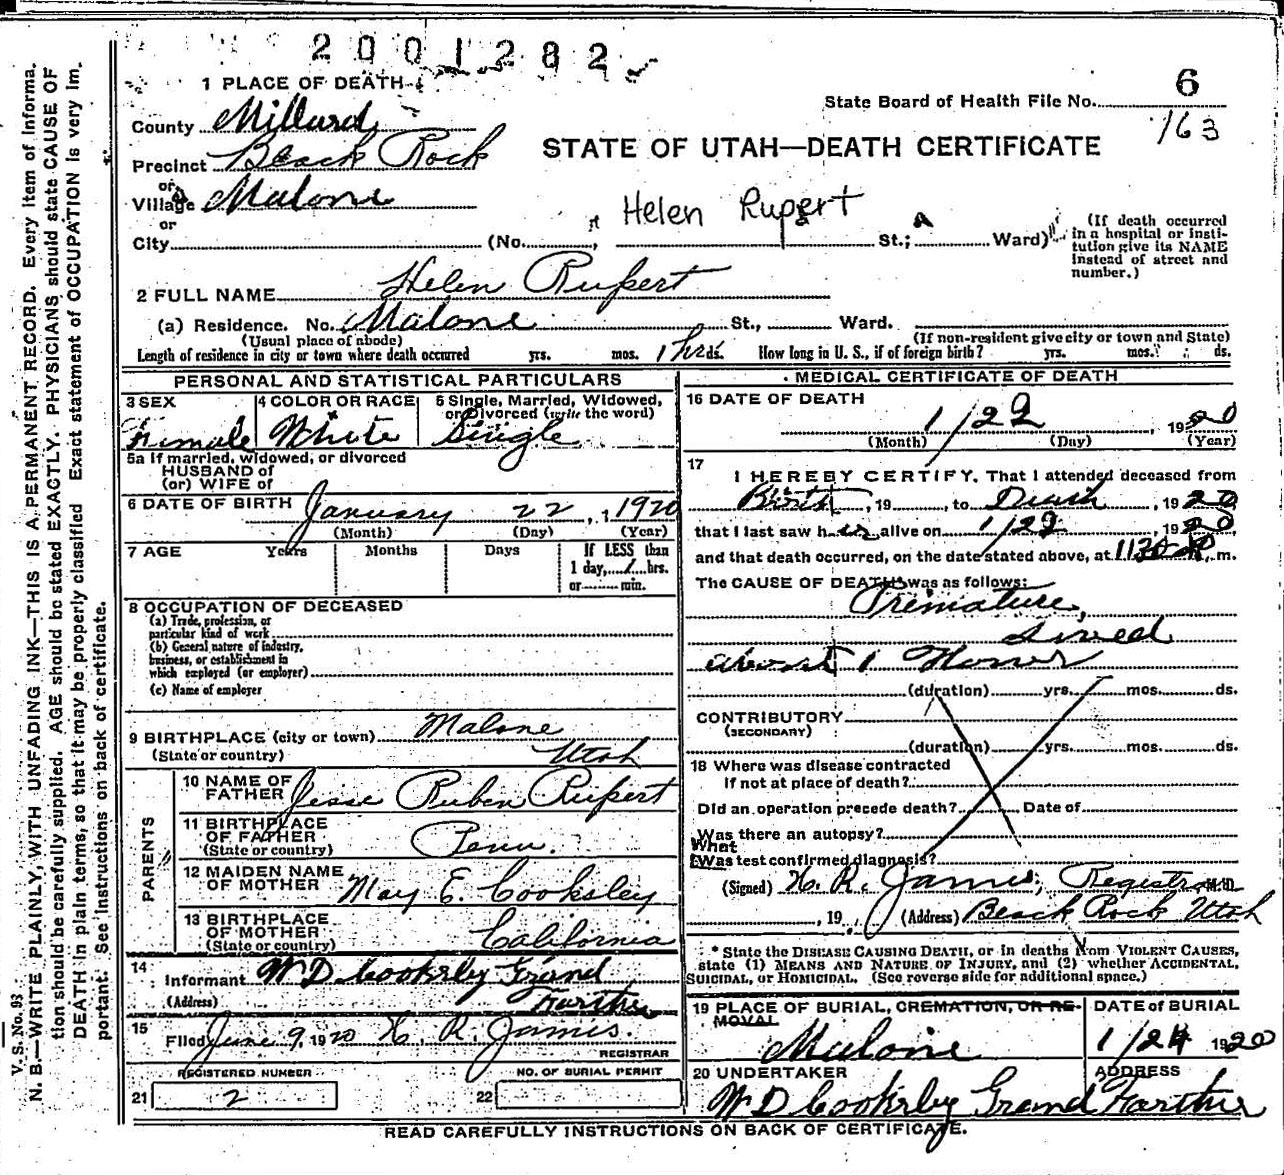 2001282
1 PLACE OF DEATH
State Board of Health File No. 6
163
County Millard
STATE OF UTAH—DEATH CERTIFICATE
Precinct Black Rock
or
Village Malone
or
Helen Rupert
City (No. , St.; Ward)
(If death occurred in a hospital or insti-
tution give its NAME instead of street and number.)
2 FULL NAME Helen Rupert
(a) Residence. No. Malone St., Ward.
(Usual place of abode) (If non-resident give city or town and State)
Length of residence in city or town where death occurred yrs. mos. 1 hr ds. How long in U. S., if of foreign birth? yrs. mos. ds.
PERSONAL AND STATISTICAL PARTICULARS
3 SEX 4 COLOR OR RACE 5 Single, Married, Widowed,
or Divorced (write the word)
Female White Single
5a If married, widowed, or divorced
HUSBAND of
(or) WIFE of
6 DATE OF BIRTH January 22, 1920
(Month) (Day) (Year)
7 AGE Years Months Days If LESS than
1 day, 1 hrs.
or min.
8 OCCUPATION OF DECEASED
(a) Trade, profession, or
particular kind of work
(b) General nature of industry,
business, or establishment in
which employed (or employer)
(c) Name of employer
9 BIRTHPLACE (city or town) Malone
(State or country) Utah
PARENTS
10 NAME OF
FATHER Jesse Ruben Rupert
11 BIRTHPLACE
OF FATHER Penn.
(State or country)
12 MAIDEN NAME
OF MOTHER May E. Cooksley
13 BIRTHPLACE
OF MOTHER California
(State or country)
14
Informant W D Cooksley Grand
(Address) Farther
15
Filed June 9, 1920 H. R. James.
REGISTRAR
REGISTERED NUMBER NO. OF BURIAL PERMIT
21 2 22
MEDICAL CERTIFICATE OF DEATH
16 DATE OF DEATH
1/22 1920
(Month) (Day) (Year)
17
I HEREBY CERTIFY, That I attended deceased from
Birth, 19 , to Death, 1920
that I last saw h er alive on 1/22, 1920
and that death occurred, on the date stated above, at 1130 P. m.
The CAUSE OF DEATH* was as follows:
Premature,
Lived
about 1 Hour
(duration) yrs. mos. ds.
CONTRIBUTORY
(SECONDARY)
(duration) yrs. mos. ds.
18 Where was disease contracted
if not at place of death?
Did an operation precede death? Date of
Was there an autopsy?
What
Was test confirmed diagnosis?
(Signed) H. R. James, Registrar M.D.
, 19 (Address) Black Rock Utah
* State the DISEASE CAUSING DEATH, or in deaths from VIOLENT CAUSES,
state (1) MEANS AND NATURE OF INJURY, and (2) whether ACCIDENTAL,
SUICIDAL, or HOMICIDAL. (See reverse side for additional space.)
19 PLACE OF BURIAL, CREMATION, OR RE-
MOVAL
DATE of BURIAL
Malone 1/24 1920
20 UNDERTAKER ADDRESS
W D Cooksley Grand Farther
READ CAREFULLY INSTRUCTIONS ON BACK OF CERTIFICATE.
V. S. No. 93
N. B.—WRITE PLAINLY, WITH UNFADING INK—THIS IS A PERMANENT RECORD. Every item of informa-
tion should be carefully supplied. AGE should be stated EXACTLY. PHYSICIANS should state CAUSE OF
DEATH in plain terms, so that it may be properly classified. Exact statement of OCCUPATION is very im-
portant. See instructions on back of certificate.